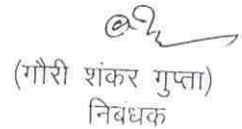 (गौरी शंकर गुप्ता)
निबंधक